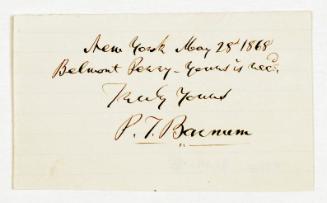 New York May 28 1868
Belmont Perry - Yours is rec'd
Truly Yours
P. T. Barnum